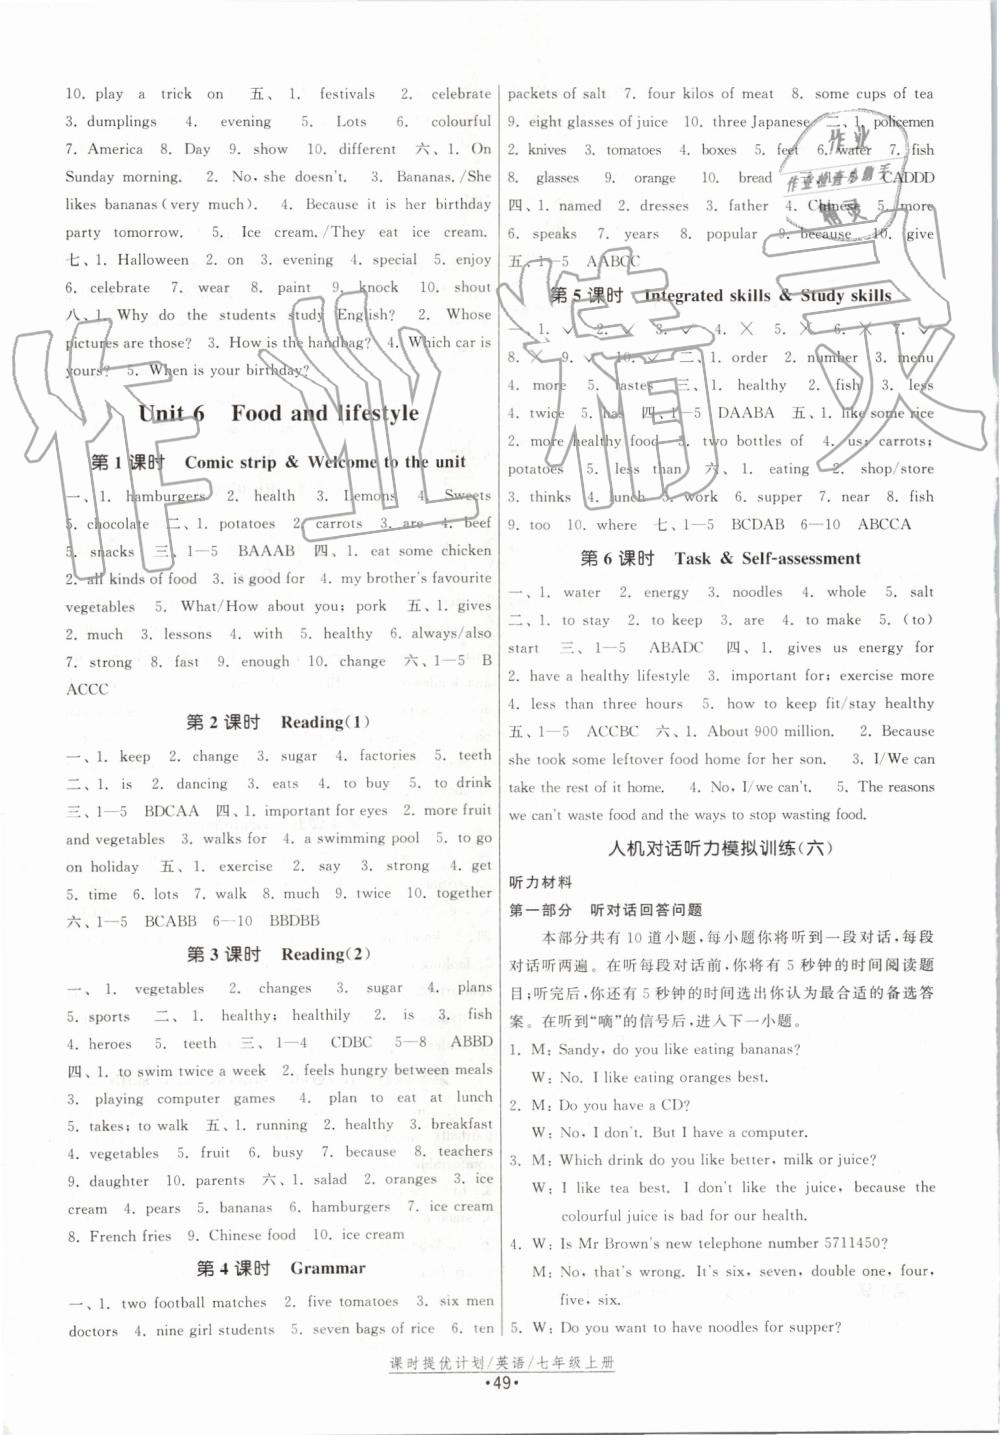 10. play a trick on 五、1. festivals 2. celebrate
3. dumplings 4. evening 5. Lots 6. colourful
7. America 8. Day 9. show 10. different 六、1. On
Sunday morning. 2. No, she doesn't. 3. Bananas./She
likes bananas(very much). 4. Because it is her birthday
party tomorrow. 5. Ice cream./They eat ice cream.
七、1. Halloween 2. on 3. evening 4. special 5. enjoy
6. celebrate 7. wear 8. paint 9. knock 10. shout
八、1. Why do the students study English? 2. Whose
pictures are those? 3. How is the handbag? 4. Which car is
yours? 5. When is your birthday?
Unit 6 Food and lifestyle
第 1 课时 Comic strip & Welcome to the unit
一、1. hamburgers 2. health 3. Lemons 4. Sweets
5. chocolate 二、1. potatoes 2. carrots 3. are 4. beef
5. snacks 三、1—5 BAAAB 四、1. eat some chicken
2. all kinds of food 3. is good for 4. my brother's favourite
vegetables 5. What/How about you; pork 五、1. gives
2. much 3. lessons 4. with 5. healthy 6. always/also
7. strong 8. fast 9. enough 10. change 六、1—5 B
ACCC
第 2 课时 Reading(1)
一、1. keep 2. change 3. sugar 4. factories 5. teeth
二、1. is 2. dancing 3. eats 4. to buy 5. to drink
三、1—5 BDCAA 四、1. important for eyes 2. more fruit
and vegetables 3. walks for 4. a swimming pool 5. to go
on holiday 五、1. exercise 2. say 3. strong 4. get
5. time 6. lots 7. walk 8. much 9. twice 10. together
六、1—5 BCABB 6—10 BBDBB
第 3 课时 Reading(2)
一、1. vegetables 2. changes 3. sugar 4. plans
5. sports 二、1. healthy; healthily 2. is 3. fish
4. heroes 5. teeth 三、1—4 CDBC 5—8 ABBD
四、1. to swim twice a week 2. feels hungry between meals
3. playing computer games 4. plan to eat at lunch
5. takes; to walk 五、1. running 2. healthy 3. breakfast
4. vegetables 5. fruit 6. busy 7. because 8. teachers
9. daughter 10. parents 六、1. salad 2. oranges 3. ice
cream 4. pears 5. bananas 6. hamburgers 7. ice cream
8. French fries 9. Chinese food 10. ice cream
第 4 课时 Grammar
一、1. two football matches 2. five tomatoes 3. six men
doctors 4. nine girl students 5. seven bags of rice 6. ten
packets of salt 7. four kilos of meat 8. some cups of tea
9. eight glasses of juice 10. three Japanese 二、1. policemen
2. knives 3. tomatoes 4. boxes 5. feet 6. water 7. fish
8. glasses 9. orange 10. bread CADDD
四、1. named 2. dresses 3. father 4. Chinese 5. more
6. speaks 7. years 8. popular 9. because 10. give
五、1—5 AABCC
第 5 课时 Integrated skills & Study skills
一、1. ✓ 2. ✓ 3. ✓ 4. ✕ 5. ✕ 6. ✕ 7. ✓
8. ✕ 9. ✓ 10. ✓ 二、1. order 2. number 3. menu
4. more 5. tastes 三、1. healthy 2. fish 3. less
4. twice 5. has 四、1—5 DAABA 五、1. like some rice
2. more healthy food 3. two bottles of 4. us; carrots;
potatoes 5. less than 六、1. eating 2. shop/store
3. thinks 4. lunch 5. work 6. supper 7. near 8. fish
9. too 10. where 七、1—5 BCDAB 6—10 ABCCA
第 6 课时 Task & Self-assessment
一、1. water 2. energy 3. noodles 4. whole 5. salt
二、1. to stay 2. to keep 3. are 4. to make 5. (to)
start 三、1—5 ABADC 四、1. gives us energy for
2. have a healthy lifestyle 3. important for; exercise more
4. less than three hours 5. how to keep fit/stay healthy
五、1—5 ACCBC 六、1. About 900 million. 2. Because
she took some leftover food home for her son. 3. I/We can
take the rest of it home. 4. No, I/we can't. 5. The reasons
we can't waste food and the ways to stop wasting food.
人机对话听力模拟训练(六)
听力材料
第一部分 听对话回答问题
本部分共有 10 道小题,每小题你将听到一段对话,每段
对话听两遍。在听每段对话前,你将有 5 秒钟的时间阅读题
目;听完后,你还有 5 秒钟的时间选出你认为最合适的备选答
案。在听到“嘀”的信号后,进入下一小题。
1. M: Sandy, do you like eating bananas?
W: No. I like eating oranges best.
2. M: Do you have a CD?
W: No, I don't. But I have a computer.
3. M: Which drink do you like better, milk or juice?
W: I like tea best. I don't like the juice, because the
colourful juice is bad for our health.
4. W: Is Mr Brown's new telephone number 5711450?
M: No, that's wrong. It's six, seven, double one, four,
five, six.
5. W: Do you want to have noodles for supper?
课时提优计划/英语/七年级上册
·49·
作业精灵
作业
精灵